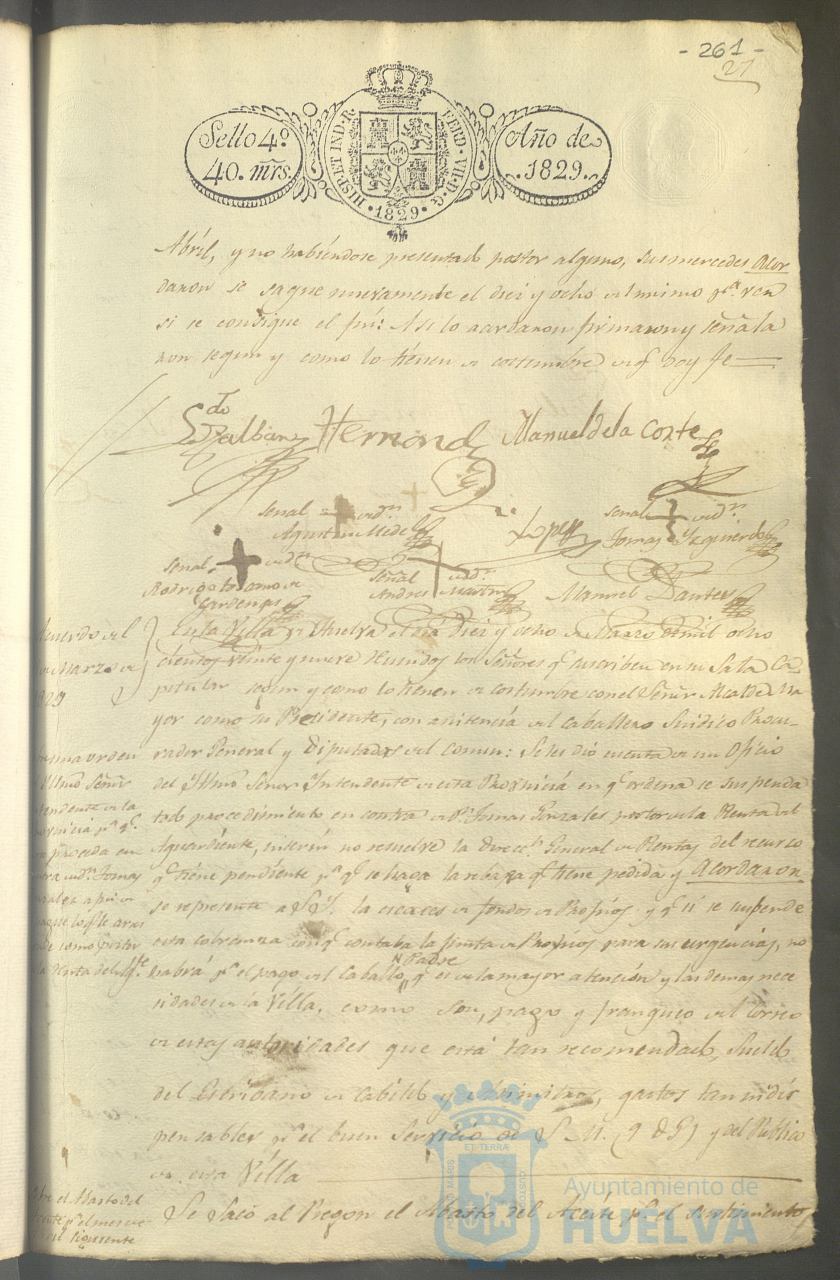 - 261 -
27
Sello 4º
40. mrs.
HISP. ET IND. R.
FERD. VII. D. G.
1829
Año de
1829.
Abril, y no habiéndose presentado postor alguno, sus mercedes Acor
daron se saque nuevamente el diez y ocho del mismo pª. ver
si se consigue el fin: Asi lo acordaron firmaron y señala
ron segun y como lo tienen de costumbre de q doy fe
Hernand
Manuel de la Corte
Señal de dn
Agustin
Lopez
Señal de dn
Tomas Yzquierdo
Señal de dn
Rodrigo
Cardenas
Señal de dn.
Andres Martin
Manuel Dantes
Acuerdo del
de Marzo de
En la Villa de Huelva el dia diez y ocho de Marzo de mil ocho
cientos veinte y nueve Reunidos los Señores q suscriben en su Sala Ca-
pitular segun y como lo tienen de costumbre con el Señor Alcalde Ma
yor como su Presidente, con asistencia del Caballero Sindico Procu-
rador General y Diputados del comun: Se les dió cuenta de un Oficio
del Yltmo Señor Yntendente de esta Provincia en q ordena se suspenda
todo procedimiento en contra de Dn Tomas Gonzales postor de la Renta del
Aguardiente, interin no resuelve la Direcn. General de Rentas del recurso
q tiene pendiente pª q se haga la rebaja q tiene pedida y Acordaron
se represente a la escases de fondos de Propios y q si se suspende
esta cobranza con q contaba la Junta de Propios para sus urgencias, no
habrá pª el pago del Caballo Padre q es de la mayor atención y las demas nece
sidades de la Villa, como son, pago y franqueo del Correo
de estas autoridades que está tan recomendado, Sueldo
del Escribano de Cabildo y Ministros, gastos tan indis
pensables pª el buen Servicio de S. M. (q D G) y del Público
de esta Villa
orden
Yltmo Señor
Yntendente de la
Provincia pª q
se proceda en
contra de Dn. Tomas
Gonzales
como postor
Renta del
Sobre el Abasto del
Aceite pª el mes de
Abril siguiente
Se Sacó al Pregon el Abasto del Aceite pª el surtimiento
Ayuntamiento de
HUELVA